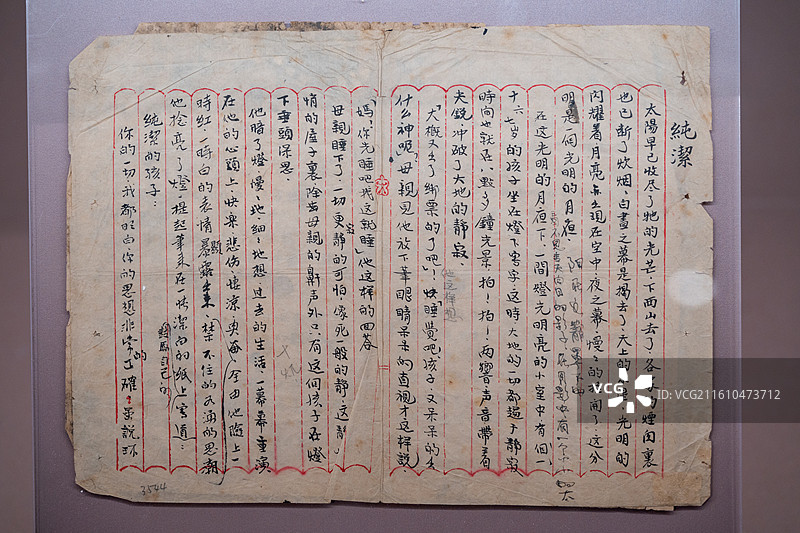 純潔
太陽早已收尽了牠的光芒、下西山去了、各家的煙囱裏
也已断了炊烟。白晝之幕是揭去了、天上的光明的
闪耀着月亮点出現在空中、夜之幕慢慢的開了這分
明是一個光明的月夜
在这光明的月夜下、一間燈光明亮的小室中有個一
十六七岁的孩子坐在燈下寫字、这時大地的一切都趨于静寂
時尚也就在八點多鐘光景、拍!拍!两響声音帶着
尖銳冲破了大地的静寂。
「大概又去了绑票的了吧!」他这样想
快睡觉吧孩子、又呆呆的
什么神呢?母親見他放下筆眼睛呆呆的直視才这样說。
「媽、你先睡吧我這就睡」他这样的回答
母親睡下了、一切更静的可怕、像死一般的静。这静
悄的屋子裏除去母親的鼾声外只有这個孩子在燈
下垂頭深思。
他暗了燈慢慢地細細地想过去的生活、一幕幕重演
在他的心頭上、快樂悲伤、凄凉與悔全由他臉上一
時紅一時白的表情暴露出來、禁不住的汹湧的思潮
他捻亮了燈、提起筆來在快潔白的紙上寫道:
純潔的孩子:
你的一切我都明白、你的思想非常的正確、要說環
3544
VCG
VCG211610473712